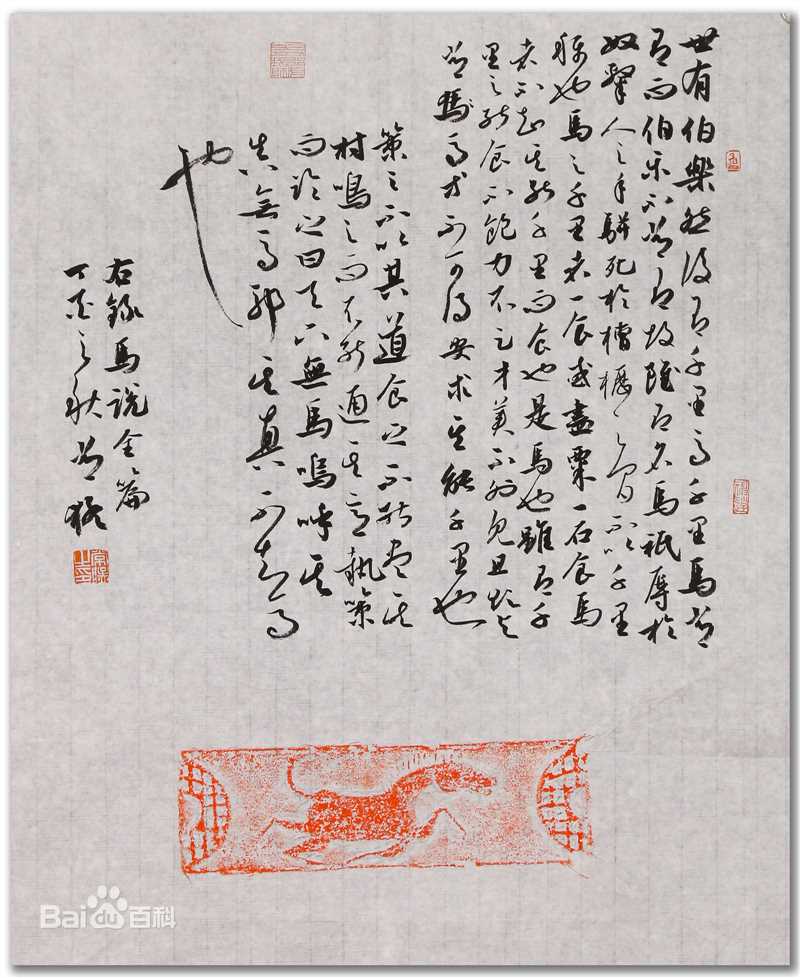 世有伯樂然後有千里馬千里馬常
有而伯樂不常有故雖有名馬祇辱於
奴隸人之手駢死於槽櫪之間不以千里
稱也馬之千里者一食或盡粟一石食馬
者不知其能千里而食也是馬也雖有千
里之能食不飽力不足才美不外見且欲与
常馬等不可得安求其能千里也
策之不以其道食之不能盡其
材鳴之而不能通其意執策
而臨之曰天下無馬嗚呼其
真無馬邪其真不知馬
也
右錄馬說全篇
丁酉之秋常
Baidu百科